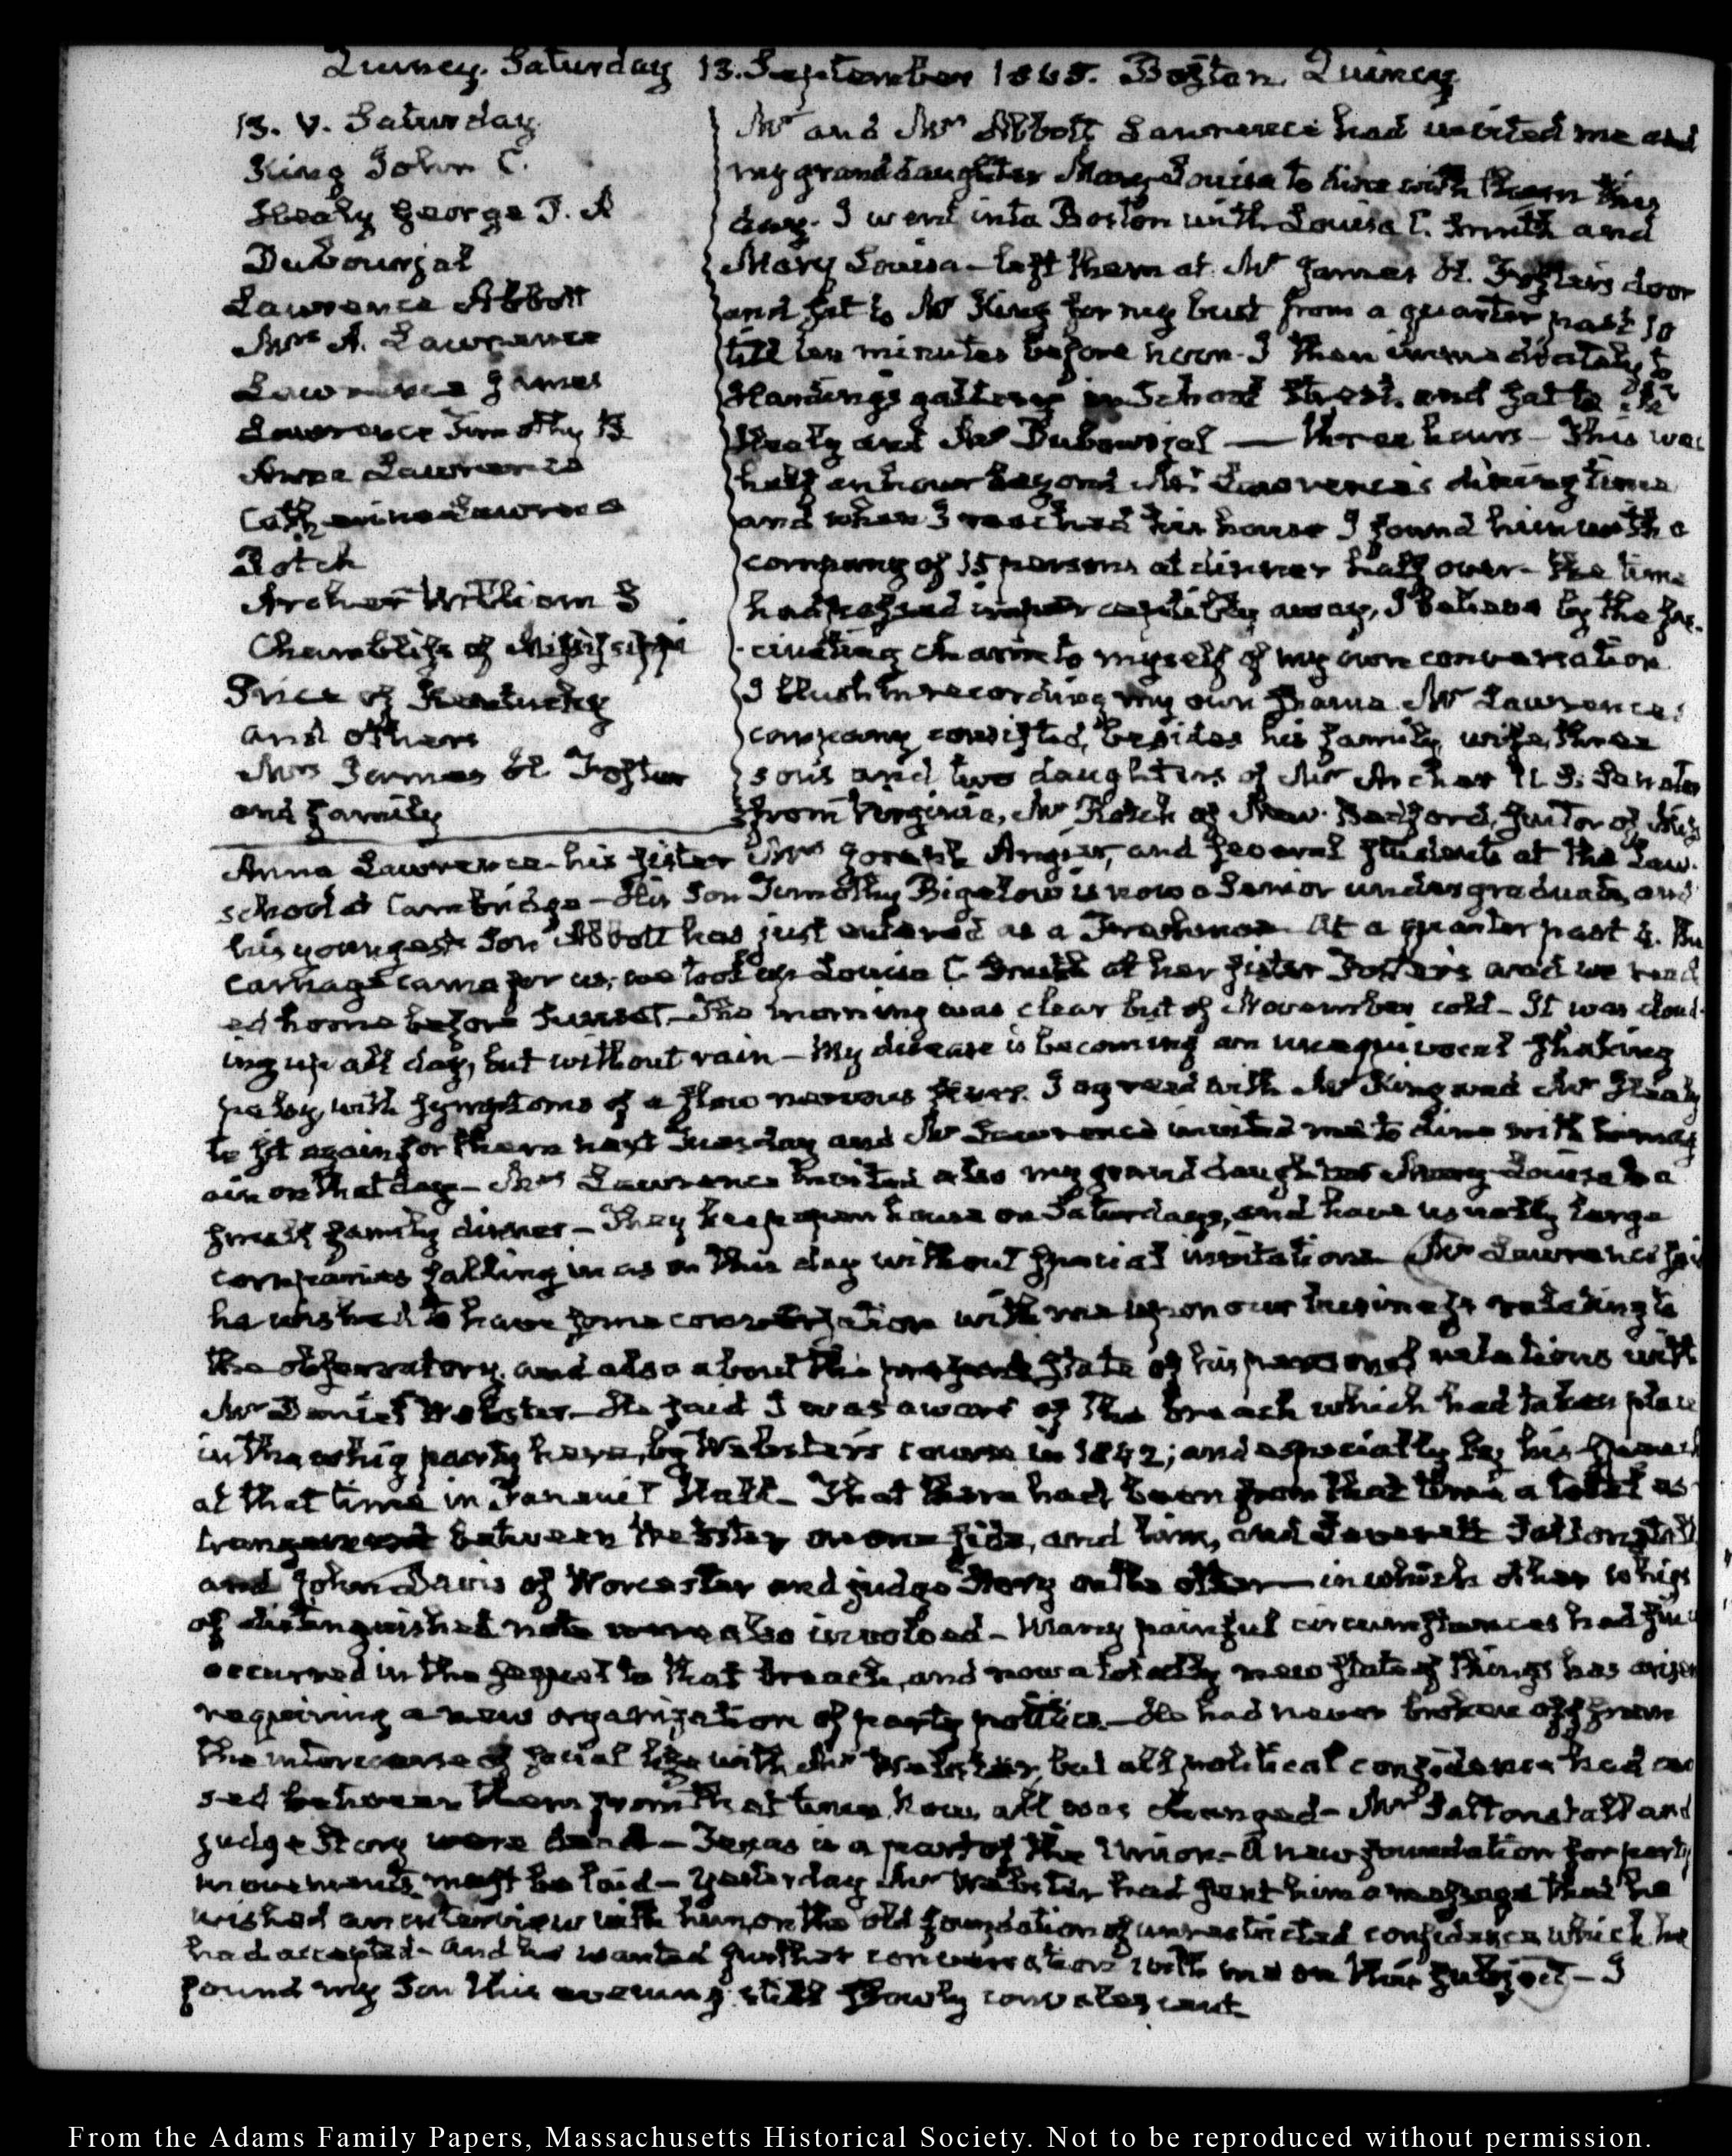 Quincy. Saturday 13. September 1845. Boston. Quincy
13. V. Saturday
King John C.
Healy George P. A
Dubourjal
Lawrence Abbott
Mrs A. Lawrence
Lawrence James
Lawrence Timothy B
Anna Lawrence
Catherine Lawrence
Rotch
Archer William S
Chambliss of Mississippi
Price of Kentucky
and others
Mrs James H. Foster
and family
Mr and Mrs Abbott Lawrence had invited me and
my granddaughter Mary Louisa to dine with them this
day. I went into Boston with Louisa C. Smith and
Mary Louisa – left them at Mr James H. Foster's door
and sat to Mr King for my bust from a quarter past 10
till ten minutes before noon. I then immediately to
Harding's gallery in School Street, and sat to Mr
Healy and Mr Dubourjal — three hours – This was
half an hour beyond Mr Lawrence's dining time
and when I reached his house I found him with a
company of 15 persons at dinner half over – the time
had passed imperceptibly away, I believe by the fas-
cinating charm to myself of my own conversation
I blush in recording my own shame. Mr Lawrence's
company consisted, besides his family, wife, three
sons and two daughters of Mr Archer U.S. Senator
from Virginia, Mr Rotch of New-Bedford, suitor of Miss
Anna Lawrence – his sister Mrs Joseph Angier, and several students at the Law-
school at Cambridge – His son Timothy Bigelow is now a Senior undergraduate, and
his youngest son Abbott has just entered as a Freshman. At a quarter past 4. the
carriage came for us; we took up Louisa C. Smith at her sister Foster's and we reach
ed home before Sunset – The morning was clear but of November cold – It was cloud-
ing up all day, but without rain – My disease is becoming an unequivocal shaking
palsy, with symptoms of a slow nervous fever. I agreed with Mr King and Mr Healy
to sit again for them next Tuesday and Mr Lawrence invited me to dine with him ag
ain on that day – Mrs Lawrence invited also my granddaughter Mary-Louisa to a
small family dinner – They keep open house on Saturdays, and have usually large
companies falling in as on this day without special invitation. Mr Lawrence said
he wished to have some conversation with me upon our business relating to
the observatory, and also about the present state of his personal relations with
Mr Daniel Webster – He said I was aware of the breach which had taken place
in the whig party here, by Webster's course in 1842; and especially by his speech
at that time in Faneuil Hall – That there had been from that time a total es-
trangement between Webster on one side, and him, and Leverett Saltonstall
and John Davis of Worcester and judge Story on the other – in which other whigs
of distinguished note were also involved – Many painful circumstances had since
occurred in the sequel to that breach, and now a totally new state of things has arisen
requiring a new organization of party politics – He had never broken off from
the intercourse of social life with Mr Webster, but all political confidence had cea
sed between them from that time. Now, all was changed – Mr Saltonstall and
judge Story were dead – Texas is a part of the Union – A new foundation for party
movements must be laid – Yesterday Mr Webster had sent him a message that he
wished an interview with him, on the old foundation of unrestricted confidence, which he
had accepted – and he wanted further conversation with me on this subject – I
found my son this evening still slowly convalescent